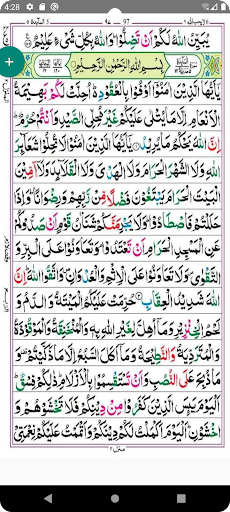 4:28
لا يحب الله ٦ ٩٧ المآئدة ٥
يُبَيِّنُ اللّٰهُ لَكُمْ اَنْ تَضِلُّوْا وَاللّٰهُ بِكُلِّ شَيْءٍ عَلِيْمٌ
بِسْمِ اللّٰهِ الرَّحْمٰنِ الرَّحِيْمِ
يٰٓاَيُّهَا الَّذِيْنَ اٰمَنُوْٓا اَوْفُوْا بِالْعُقُوْدِ اُحِلَّتْ لَكُمْ بَهِيْمَةُ
الْاَنْعَامِ اِلَّا مَا يُتْلٰى عَلَيْكُمْ غَيْرَ مُحِلِّي الصَّيْدِ وَاَنْتُمْ حُرُمٌ
اِنَّ اللّٰهَ يَحْكُمُ مَا يُرِيْدُ يٰٓاَيُّهَا الَّذِيْنَ اٰمَنُوْا لَا تُحِلُّوْا شَعَآئِرَ
اللّٰهِ وَلَا الشَّهْرَ الْحَرَامَ وَلَا الْهَدْيَ وَلَا الْقَلَآئِدَ وَلَآ آٰمِّيْنَ
الْبَيْتَ الْحَرَامَ يَبْتَغُوْنَ فَضْلًا مِّنْ رَّبِّهِمْ وَرِضْوَانًا وَاِذَا
حَلَلْتُمْ فَاصْطَادُوْا وَلَا يَجْرِمَنَّكُمْ شَنَاٰنُ قَوْمٍ اَنْ صَدُّوْكُمْ
عَنِ الْمَسْجِدِ الْحَرَامِ اَنْ تَعْتَدُوْا وَتَعَاوَنُوْا عَلَى الْبِرِّ وَ
التَّقْوٰى وَلَا تَعَاوَنُوْا عَلَى الْاِثْمِ وَالْعُدْوَانِ وَاتَّقُوا اللّٰهَ اِنَّ
اللّٰهَ شَدِيْدُ الْعِقَابِ حُرِّمَتْ عَلَيْكُمُ الْمَيْتَةُ وَالدَّمُ وَ
لَحْمُ الْخِنْزِيْرِ وَمَآ اُهِلَّ لِغَيْرِ اللّٰهِ بِهٖ وَالْمُنْخَنِقَةُ وَالْمَوْقُوْذَةُ
وَالْمُتَرَدِّيَةُ وَالنَّطِيْحَةُ وَمَآ اَكَلَ السَّبُعُ اِلَّا مَا ذَكَّيْتُمْ وَ
مَا ذُبِحَ عَلَى النُّصُبِ وَاَنْ تَسْتَقْسِمُوْا بِالْاَزْلَامِ ذٰلِكُمْ فِسْقٌ
اَلْيَوْمَ يَئِسَ الَّذِيْنَ كَفَرُوْا مِنْ دِيْنِكُمْ فَلَا تَخْشَوْهُمْ وَ
اخْشَوْنِ اَلْيَوْمَ اَكْمَلْتُ لَكُمْ دِيْنَكُمْ وَاَتْمَمْتُ عَلَيْكُمْ نِعْمَتِيْ
منزل ٢